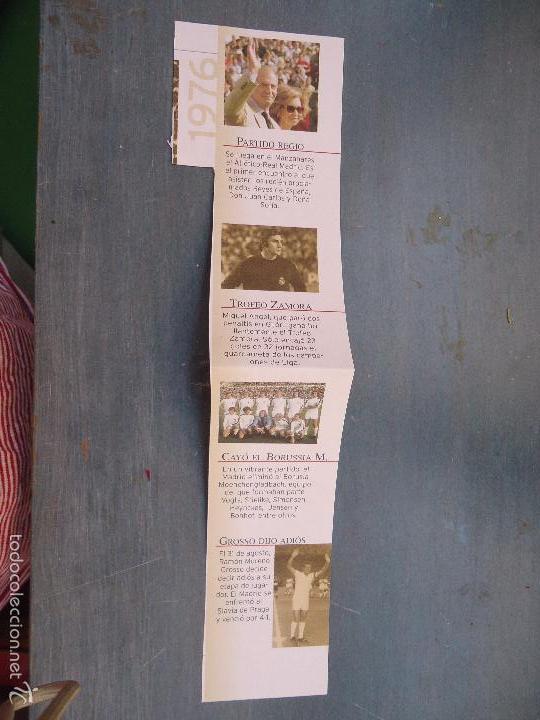 1976
PARTIDO REGIO
Se juega en el Manzanares
el Atlético-Real Madrid. Es
el primer encuentro al que
asisten los recién procla-
mados Reyes de España,
Don Juan Carlos y Doña
Sofía.
TROFEO ZAMORA
Miguel Angel, que paró dos
penaltis en Gijón, ganó bri-
llantemente el Trofeo
Zamora. Sólo encajó 23
goles en 32 jornadas el
guardameta de los campe-
ones de Liga.
CAYÓ EL BORUSSIA M.
En un vibrante partido, el
Madrid eliminó al Borusia
Moenchengladbach, equipo
del que formaban parte
Vogts, Stielike, Simonsen,
Heynckes, Jensen y
Bonhof, entre otros.
GROSSO DIJO ADIÓS
El 31 de agosto,
Ramón Moreno
Grosso decide
decir adiós a su
etapa de juga-
dor. El Madrid se
enfrentó al
Slavia de Praga
y venció por 4-1.
todocoleccion